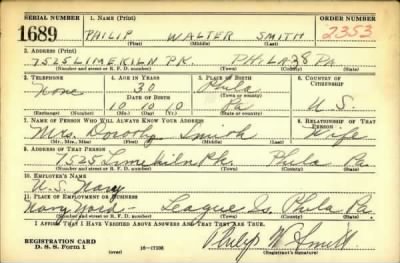 SERIAL NUMBER 1. NAME (Print) ORDER NUMBER
1689 PHILIP WALTER SMITH 2353
(First) (Middle) (Last)
3. ADDRESS (Print)
7525 LIMEKILN PK. PHILA 38 PA
(Number and street or R. F. D. number) (Town) (County) (State)
2. TELEPHONE 4. AGE IN YEARS 5. PLACE OF BIRTH 6. COUNTRY OF CITIZENSHIP
None 30 Phila
DATE OF BIRTH (Town or county)
10 10 10 Pa U.S.
(Exchange) (Number) (Mo.) (Day) (Yr.) (State or country)
7. NAME OF PERSON WHO WILL ALWAYS KNOW YOUR ADDRESS 8. RELATIONSHIP OF THAT PERSON
Mrs. Dorothy Smith Wife
(Mr., Mrs., Miss) (First) (Middle) (Last)
9. ADDRESS OF THAT PERSON
7525 Limekiln Pk. Phila Pa.
(Number and street or R. F. D. number) (Town) (County) (State)
10. EMPLOYER'S NAME
U.S. Navy
11. PLACE OF EMPLOYMENT OR BUSINESS
Navy Yard - League Is. Phila Pa.
(Number and street or R. F. D. number) (Town) (County) (State)
I AFFIRM THAT I HAVE VERIFIED ABOVE ANSWERS AND THAT THEY ARE TRUE.
REGISTRATION CARD
D. S. S. Form 1 (over) 16-17105 Philip W Smith
(Registrant's signature)